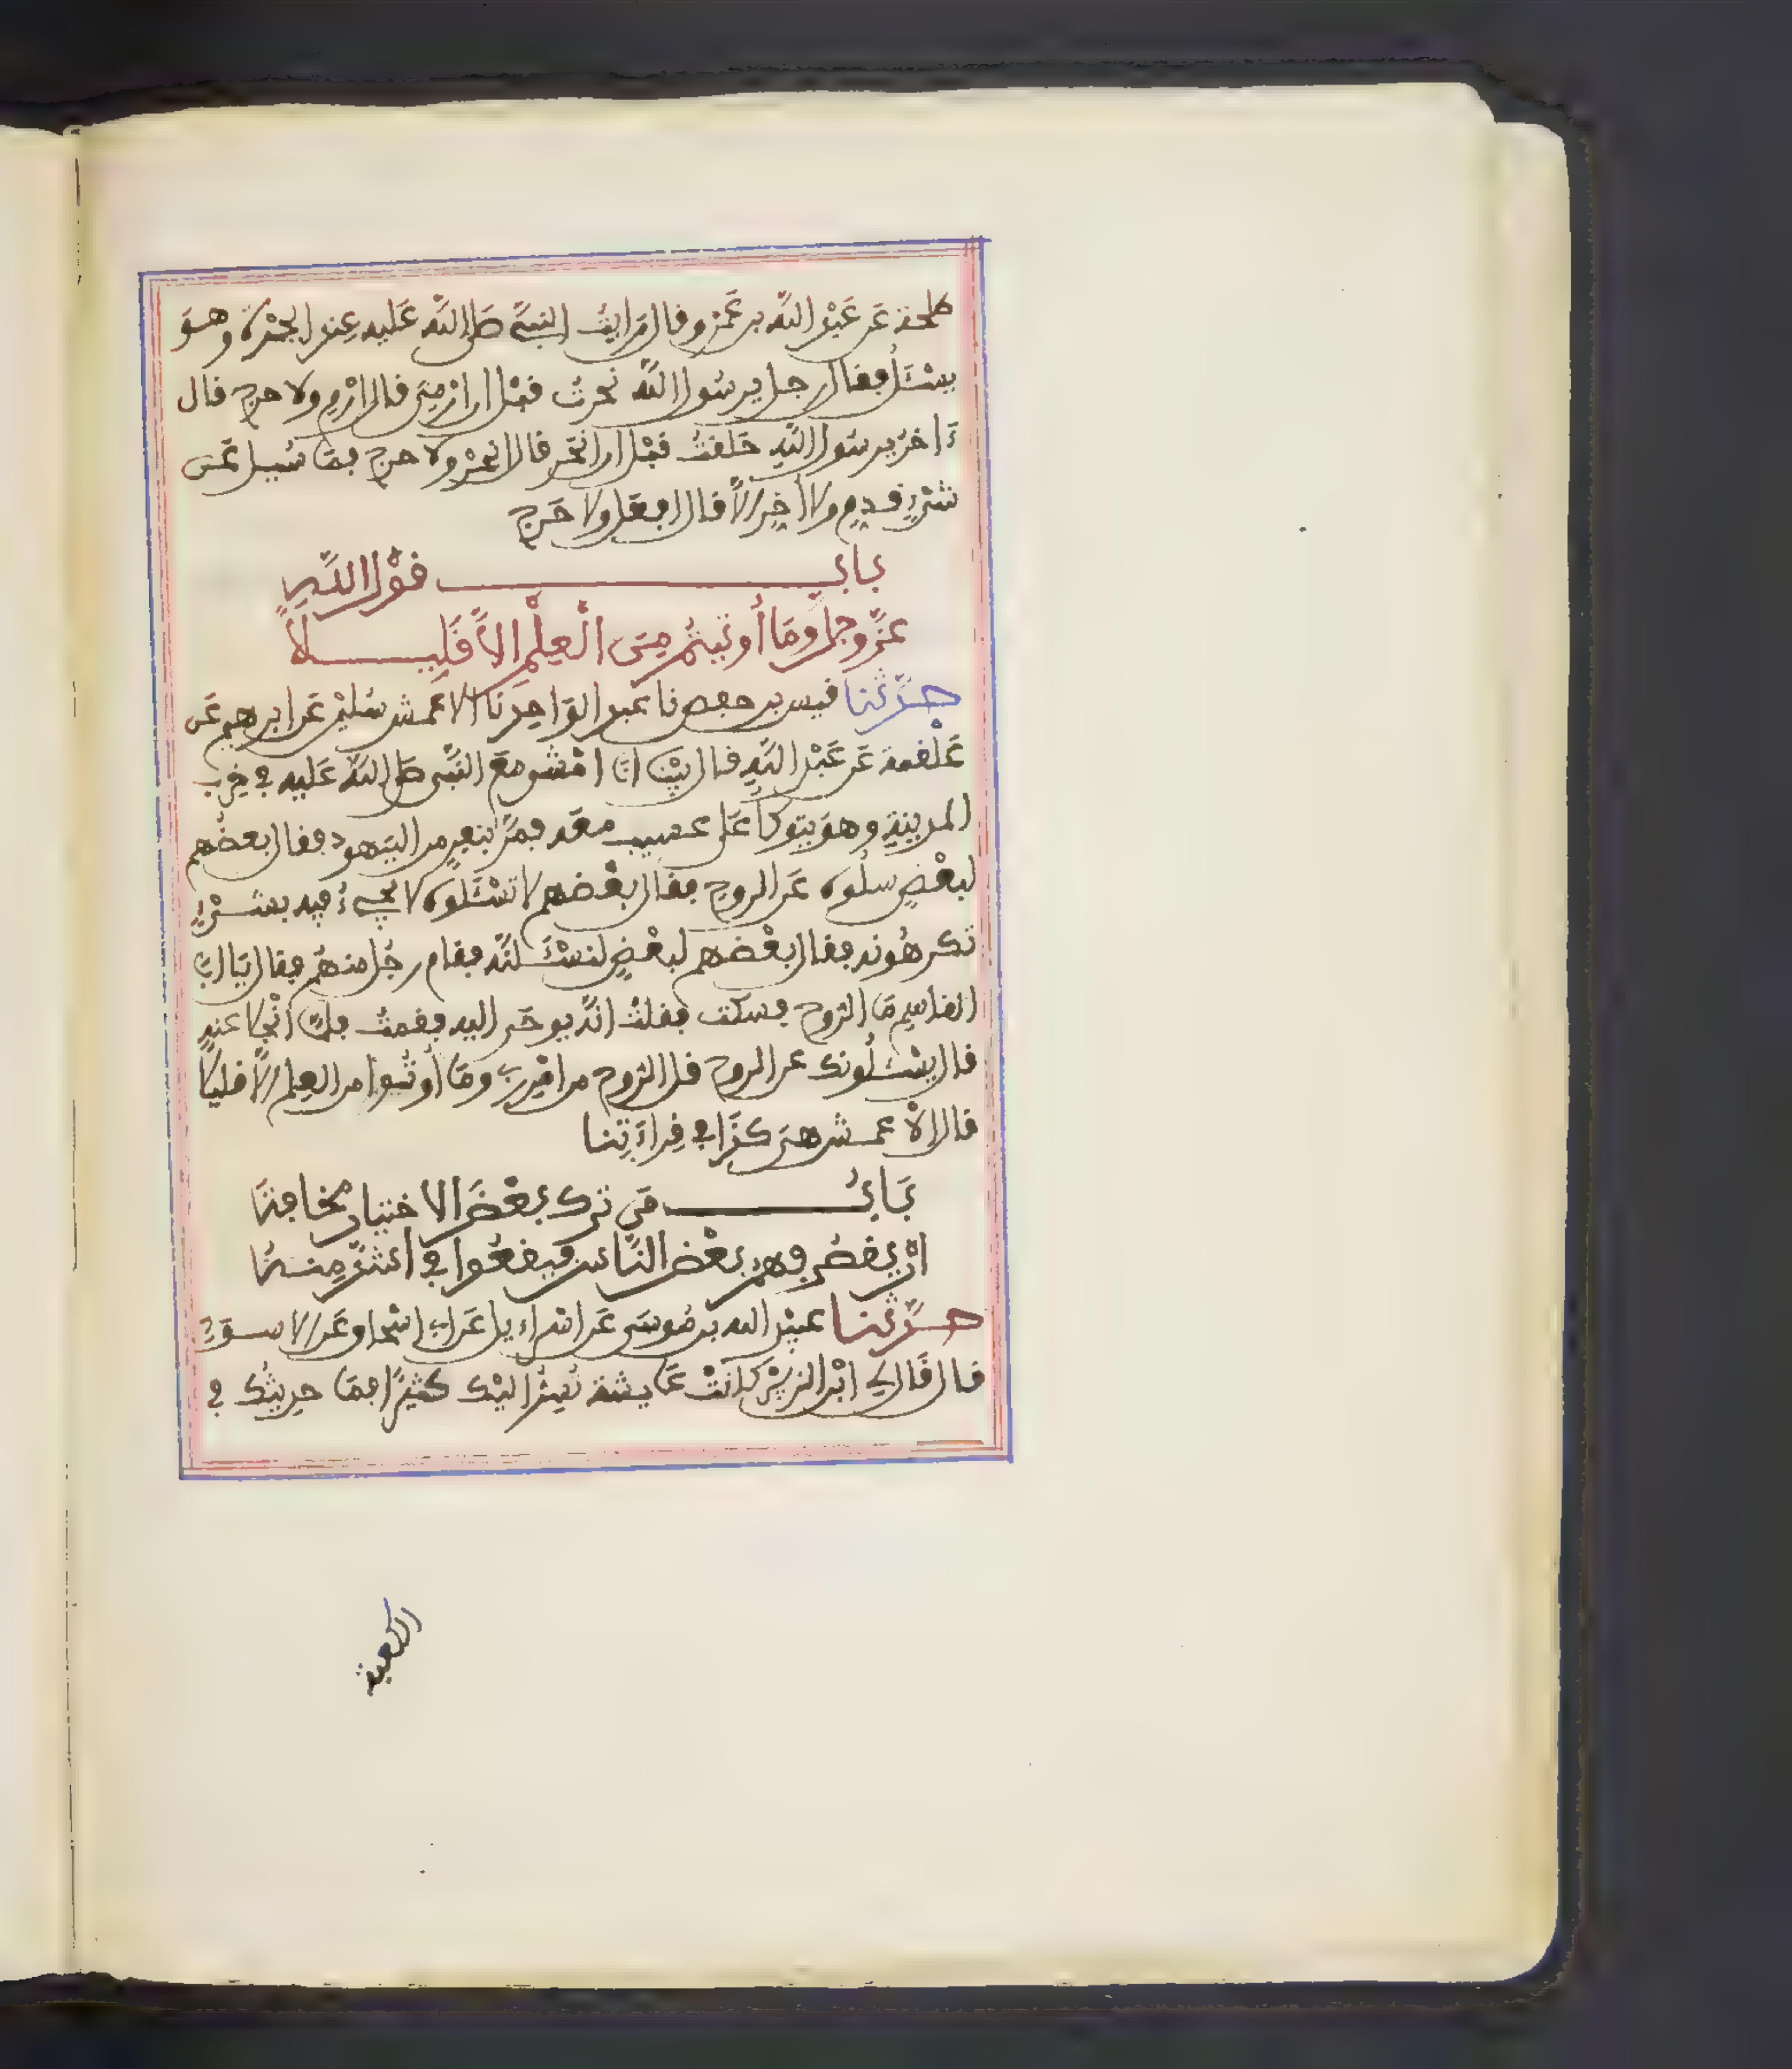 طلحة عَن عَبْد اللَّه بن عَمْرو قال رَأيتُ النبيَّ صَلى اللَّه عَليه عِند الجمْرة وهوَ
يسْئَلُ فقال رجل يرسُول اللَّه نحرتُ قبْل ان ارْمِيَ قال ارْمِ ولا حرج قال
ءَاخرُ يرسُول اللَّهِ حَلقتُ قبْل ان انحَر قال انحرْ ولا حرج فمَا سُيِل عَن
شيْءٍ قدِم ولا أخِر إلاَّ قال افعَل ولا حَرج
بابُ قوْل اللَّهِ
عزَّ وجل وَمَا أُوتيتُم مِنَ الْعِلْمِ إلاَّ قَلِيلاً
حدَّثنا قيس بن حفص نا عبد الوَاحِد نَا الاعمش سُليْمن عَن ابرهيم عَن
عَلْقمة عَن عَبْد اللَّهِ قال بيْنا انَا امْشي معَ النَّبي صَلى اللَّهُ عَليه في خِرَب
المدينةِ وهوَ يتوكأ عَلى عسيب معَه فمرَّ بنفرٍ من اليَهود فقال بعضُهم
لبعْضٍ سلُوه عَن الروح فقال بعْضهم لا تسْئَلوه لا يجيءُ فيه بشيْءٍ
تكرهُونه فقال بعْضهم لبعْضٍ لنسْئَلنَّه فقام رجُل منهُم فقال يَا ابَا
القاسِم مَا الرُّوح فسكت فقلتُ انَّه يوحَى اليه فقمتُ فلمَّا انْجلا عنه
قال يسْئَلُونك عن الروح قل الرُّوح من امْرِ ربي ومَا أُوتُوا من العِلم إلاَّ قليلاً
قال الاْعمش هيَ كذَا في قِراءَتِنا
بَابُ مَن تَرك بعْضَ الاختيار مخافةَ
انْ يقصُر فهْم بعْض النَّاس فيقعُوا في اشدَّ مِنْهُ
حدَّثنا عبيْد الله بن مُوسَى عَن اسْراءِيل عَن ابي اسْحاق عَن الاسوَدِ
قال قَال لي ابْن الزبيْر كَانَتْ عَايشة تُسِرُّ اليْك كثيْرًا فمَا حدِّثتْك في
الكعبة